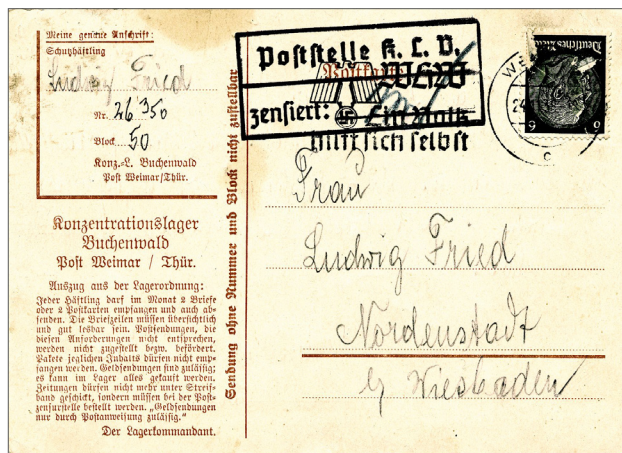 Meine genaue Anschrift:
Schutzhäftling
Ludwig Fried
Nr. 26350
Block 50
Konz.-L. Buchenwald
Post Weimar/Thür.
Konzentrationslager
Buchenwald
Post Weimar / Thür.
Auszug aus der Lagerordnung:
Jeder Häftling darf im Monat 2 Briefe
oder 2 Postkarten empfangen und auch ab-
senden. Die Briefzeilen müssen übersichtlich
und gut lesbar sein. Postsendungen, die
diesen Anforderungen nicht entsprechen,
werden nicht zugestellt bezw. befördert.
Pakete jeglichen Inhalts dürfen nicht emp-
fangen werden. Geldsendungen sind zulässig;
es kann im Lager alles gekauft werden.
Zeitungen dürfen nicht mehr unter Streif-
band geschickt, sondern müssen bei der Post-
zensurstelle bestellt werden. „Geldsendungen
nur durch Postanweisung zulässig.“
Der Lagerkommandant.
Sendung ohne Nummer und Block nicht zustellbar
Poststelle K. L. B.
Postkarte
WHW
zensiert:
Ein Volk
hilft sich selbst
WE
Deutsches Reich
6 6
c
Frau
Ludwig Fried
Nordenstadt
b/ Wiesbaden